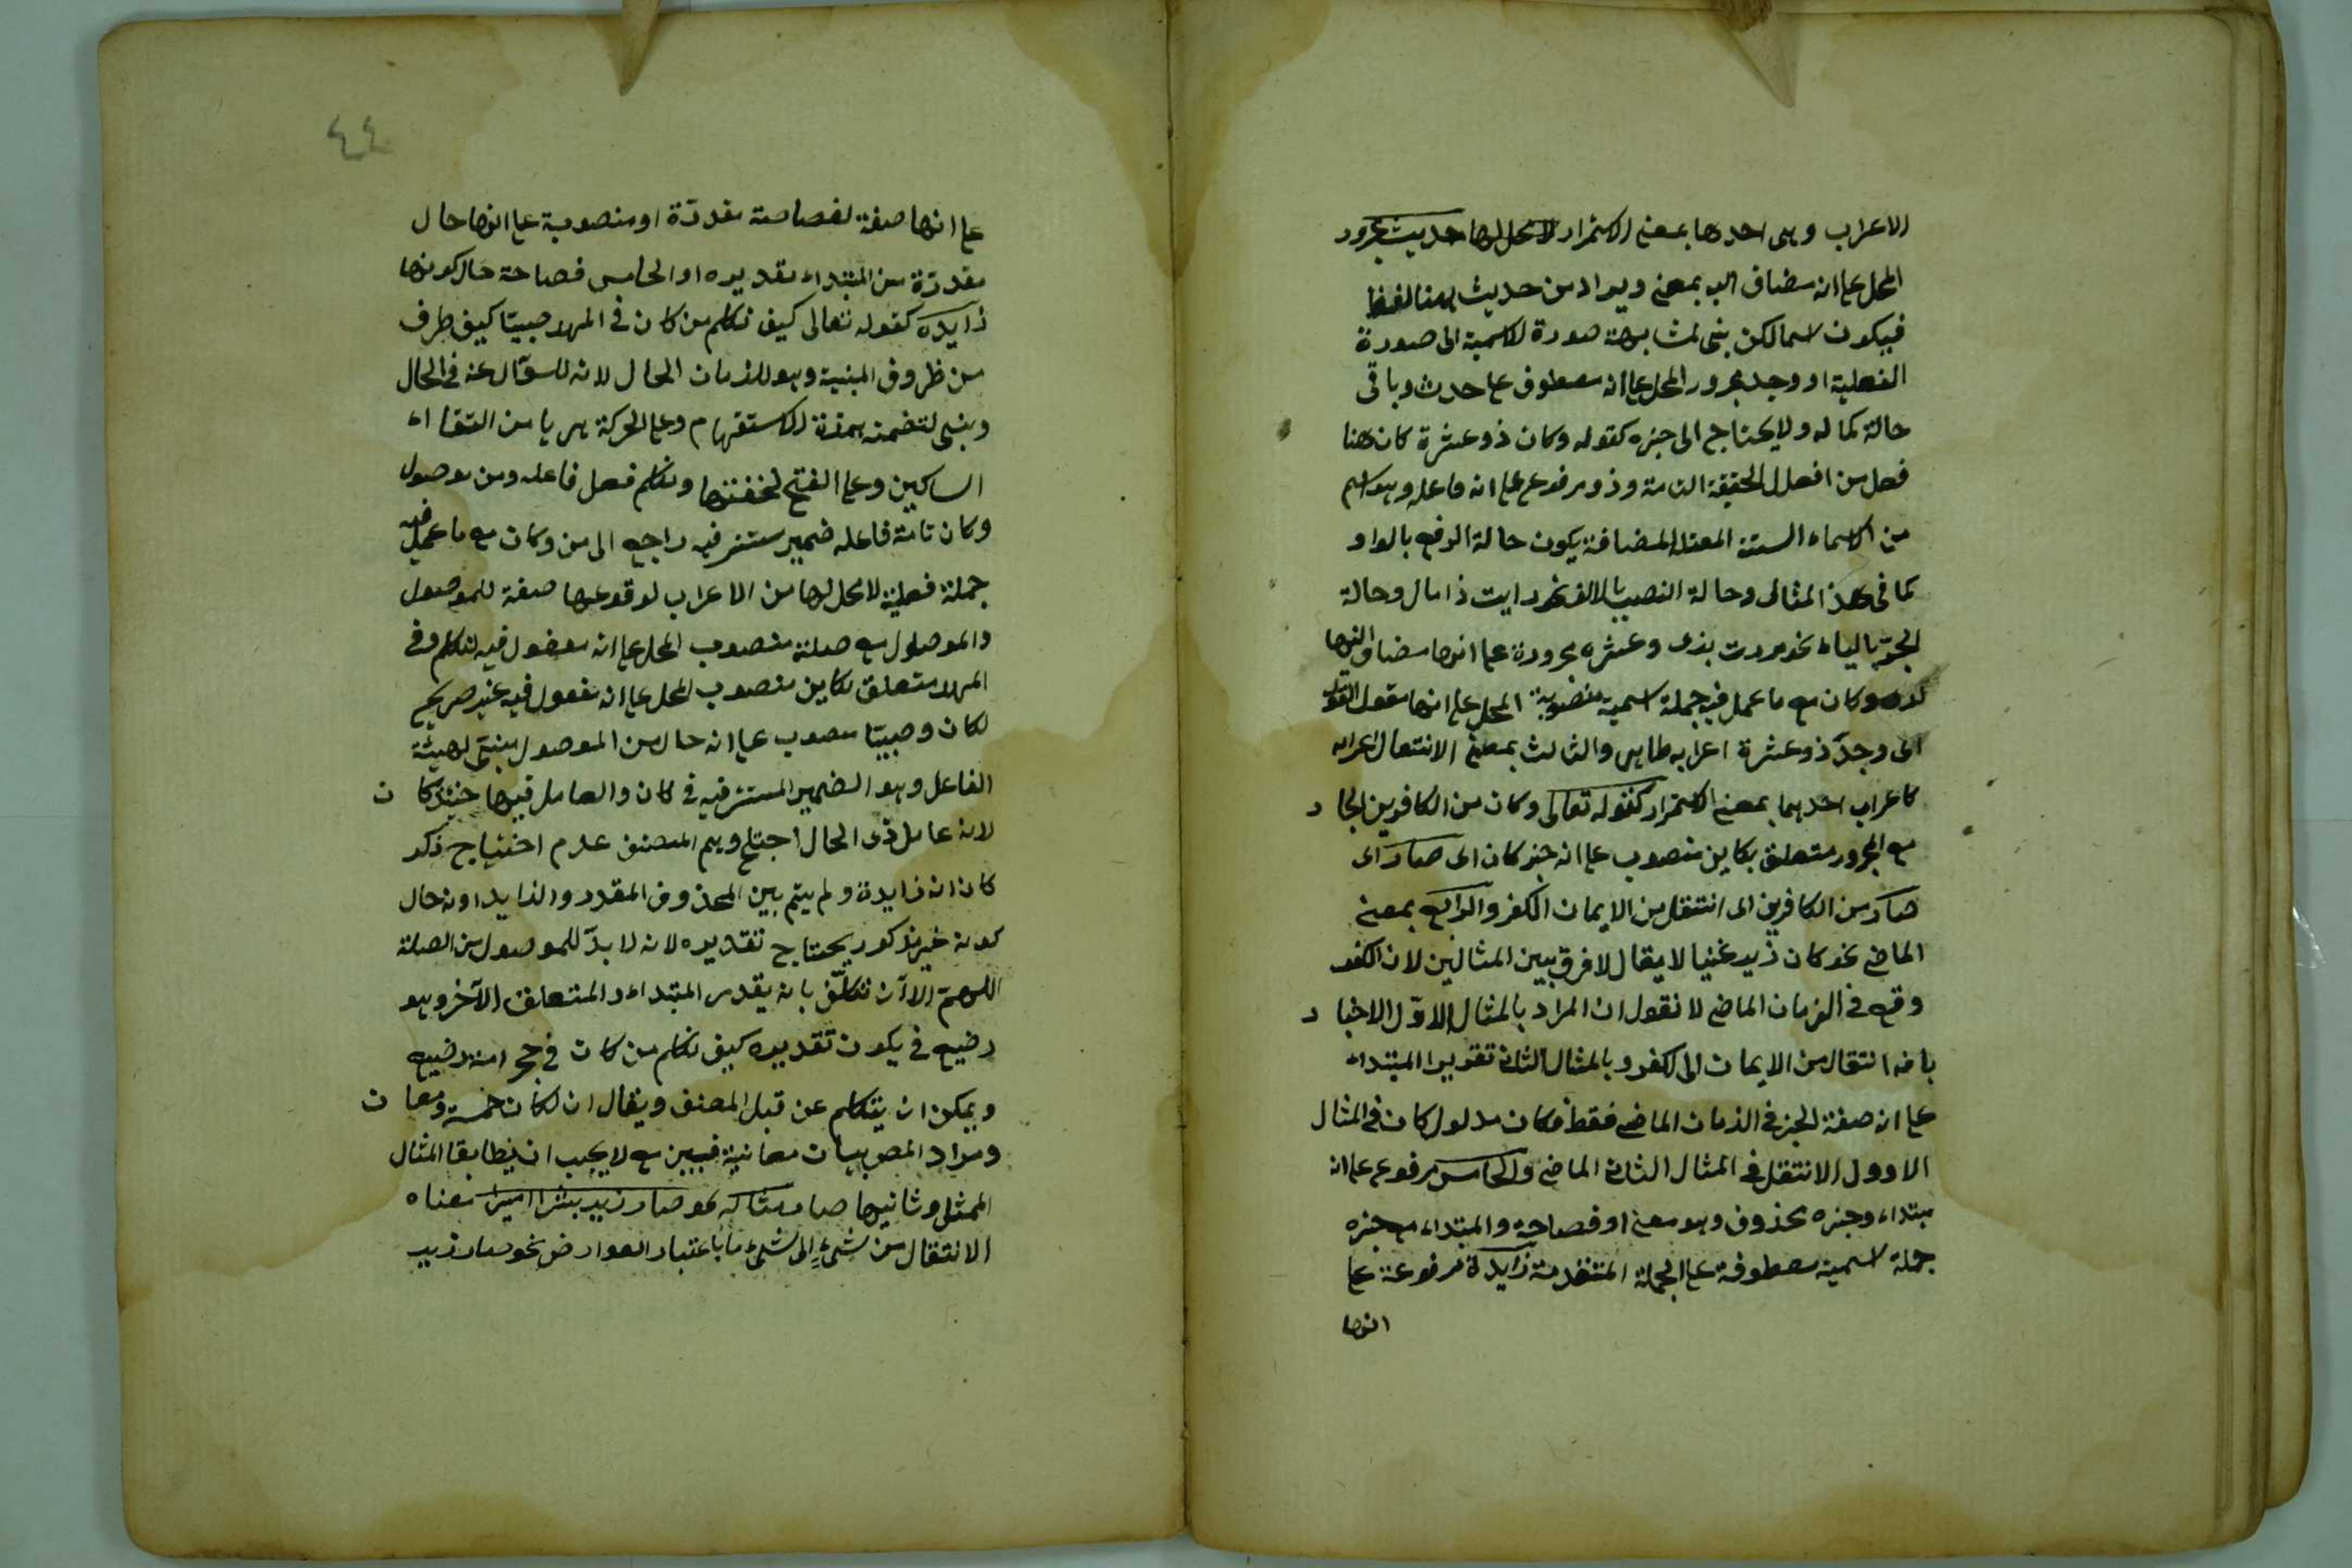 الاعراب وهى احدها بمعنى الاستمرار لا محل لها حديث مجرور
المحل على انه مضاف اليه بمعنى ويراد من حديث ههنا لفظا
فيكون اسما لكن بنى لمشابهة صورة الاسمية الى صورة
الفعلية او وجد مجرور المحل على انه معطوف على حدث وباقى
حالة كماله ولا يحتاج الى خبره كقوله وكان ذو عشرة كان هنا
فعل من افعال الحقيقة التامة وذو مرفوع على انه فاعله وهو اسم
من الاسماء الستة المعتلة المضافة يكون حالة الرفع بالواو
كما فى هذا المثال وحالة النصب بالالف نحو رايت ذا مال وحالة
الجر بالياء نحو مررت بذى وعشره مجرورة على انها مضاف اليها
لذو وكان مع ما عمل فيه جملة اسمية منصوبة المحل على انها مقول القول
اى وجد ذو عشرة اعرابه ظاهر والثالث بمعنى الانتقال اعرابه
كاعراب احدهما بمعنى الاستمرار كقوله تعالى وكان من الكافرين الجار
مع المجرور متعلق بكاين منصوب على انه خبر كان اى صار اى
صار من الكافرين اى انتقل من الايمان الكفر والرابع بمعنى
الماضى نحو كان زيد غنيا لا يقال لا فرق بين المثالين لان الكفر
وقع فى الزمان الماضى لا نقول ان المراد بالمثال الاول الاخبار
بانه انتقال من الايمان الى الكفر وبالمثال الثانى تقرير المبتداء
على انه صفة الخبر فى الزمان الماضى فقط فكان مدلول كان فى المثال
الاوول الانتقل فى المثال الثانى الماضى والخامس مرفوع على انه
مبتداء وخبره محذوف وهو معنى او فصاحة والمبتداء مع خبره
جملة اسمية معطوفة على الجملة المتقدمة زايدة مرفوعة على
انها
٤٤
على انها صفة لفصاحة مقدرة او منصوبة على انها حال
مقدرة من المبتداء تقديره او الخامس فصاحة حال كونها
زايدة كقوله تعالى كيف نكلم من كان فى المهد صبيتا كيف ظرف
من ظروف المبنية وهو للزمان الحال لانه للسؤال عنه فى الحال
وبنى لتضمنه همزة الاستفهام وعلى الحركة هربا من التقاء
الساكين وعلى الفتح لخفتها ونكلم فعل فاعله ومن موصول
وكان تامة فاعله ضمير مستتر فيه راجع الى من وكان مع ما عمل فيه
جملة فعلية لا محل لها من الاعراب لوقوعها صفة للموصول
والموصول مع صلته منصوب المحل على انه مفعول فيه لنكلم وفى
المهد متعلق بكاين منصوب المحل على انه مفعول فيه غير صريح
لكان وصبيتا منصوب على انه حال من الموصول مبين لهيئة
الفاعل وهو الضمير المستتر فيه فى كان والعامل فيها حينئذ كان
لانه عامل ذى الحال اجتاع وهم المصنف عدم احتياج ذكر
كان انه زايدة ولم يتم بين المحذوف المقدر والزايد اونه حال
كونه غير مذكور يحتاج تقديره لانه لا بد للموصول من الصلة
اللهم الا ان تكلف بانه يقدر المبتداء والمتعلق الآخر وهو
رضيع فى يكون تقديره كيف نكلم من كان فى حجر امه رضيع
ويمكن ان يتكلم عن قبل المصنف ويقال ان لكان خمسة معان
ومراد المص بيان معانية فبين مع لا يجب ان يطابقا المثال
الممثل وثانيها صار مثاله نحو صار زيد بشرا اميرا معناه
الانتقال من شئ الى شئ ما باعتبار العوارض نحو صار زيد